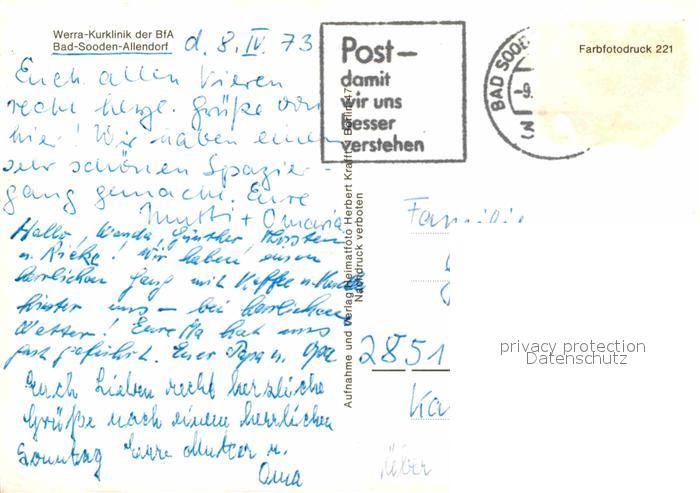 Werra-Kurklinik der BfA
Bad-Sooden-Allendorf
d. 8. IV. 73
Euch allen Vieren
recht herzl. Grüße von
hier! Wir haben einen
sehr schönen Spazier-
gang gemacht. Eure
Mutti + Omaria
Hallo, Wanda, Günther, Thorsten
u. Rieke! Wir haben einen
herrlichen Gang mit Kaffee u.
hinter uns – bei herrlichem
Wetter! Eure Ma hat uns
gut geführt. Euer Papa u. Opa
Euch Lieben recht herzliche
Grüße nach einem herrlichen
Sonntag Eure Mutter u.
Oma
Post–
damit
wir uns
besser
verstehen
BAD SOODE
-9.
Farbfotodruck 221
Aufnahme und Verlag Heimatfoto Herbert Krafft, Berlin 47
Nachdruck verboten
Familie
2851
Ka
über
privacy protection
Datenschutz